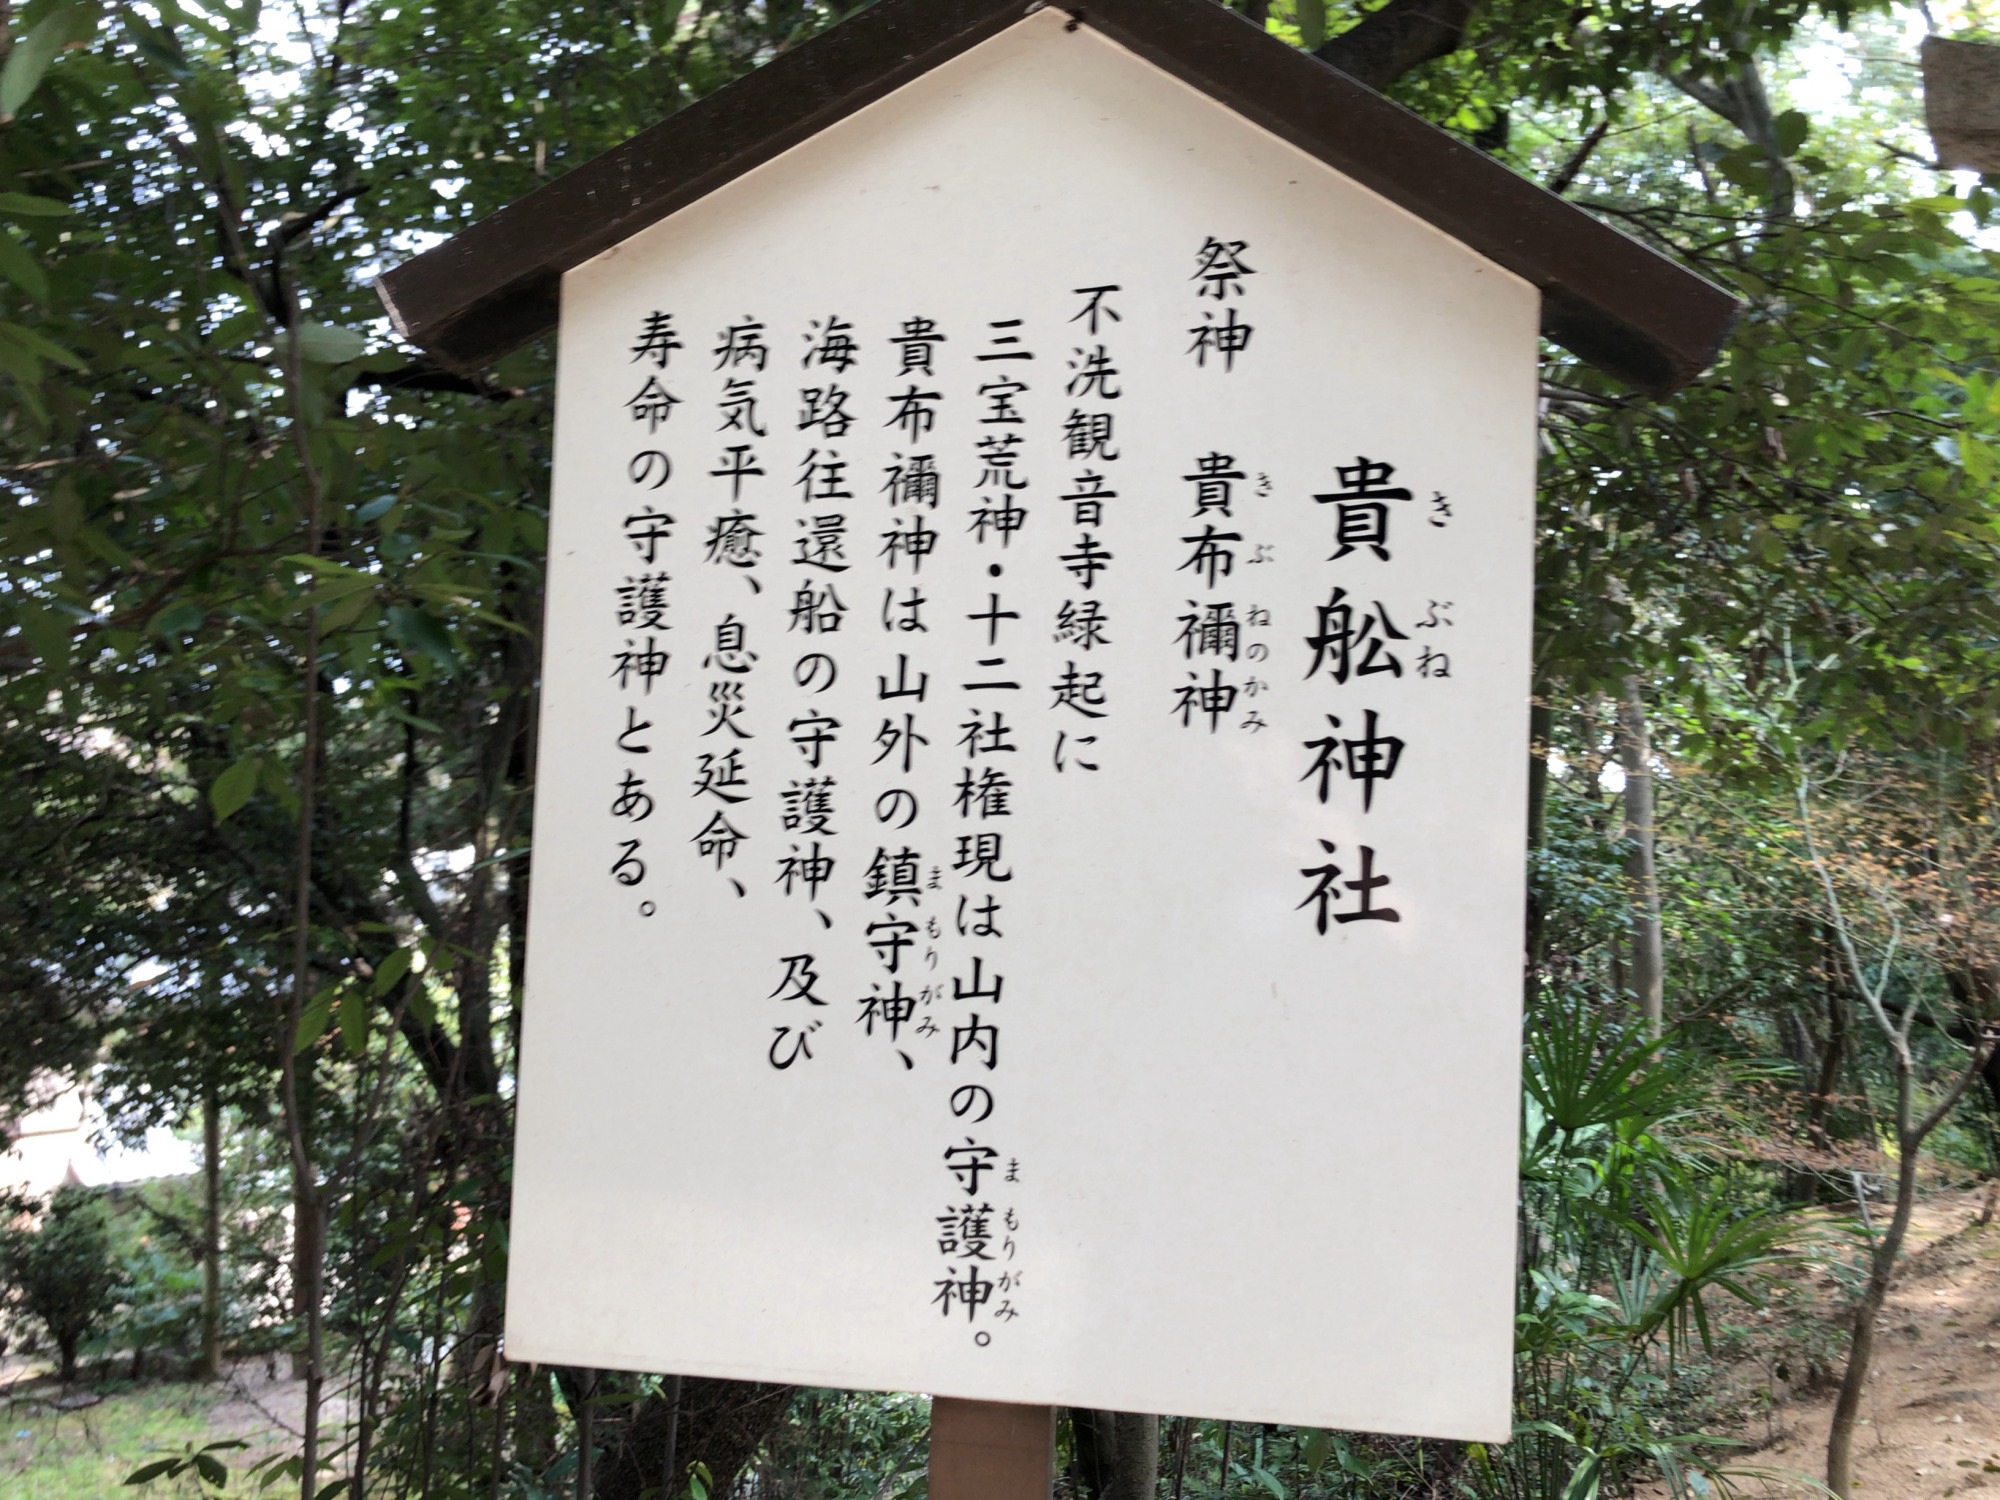 貴舩神社
祭神　貴布禰神
不洗観音寺緑起に
三宝荒神・十二社権現は山内の守護神。
貴布禰神は山外の鎮守神、
海路往還船の守護神、及び
病気平癒、息災延命、
寿命の守護神とある。